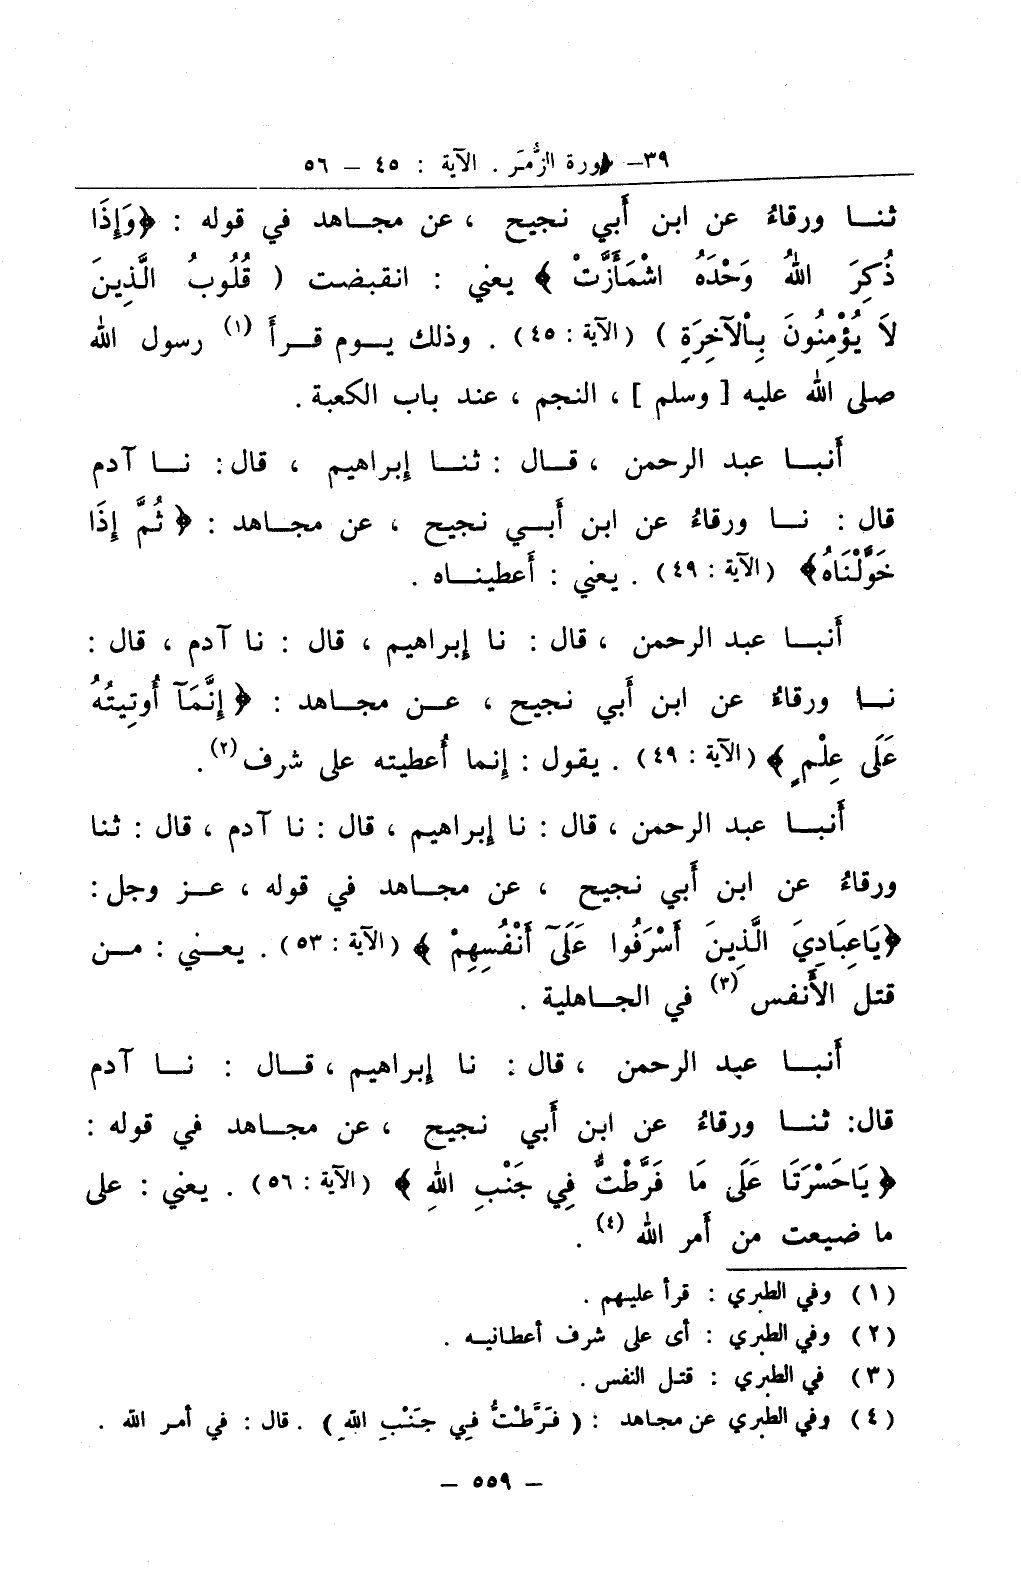 ٣٩– سورة الزُّمَر . الآية : ٤٥ – ٥٦
ثنــا ورقاءُ عن ابن أَبي نجيح ، عن مجــاهد في قوله : ﴿وَإِذَا
ذُكِرَ اللهُ وَحْدَهُ اشْمَأَزَّتْ ﴾ يعني : انقبضت ( قُلُوبُ الَّذِينَ
لاَ يُؤْمِنُونَ بِالْآخِرَةِ ) (الآية : ٤٥) . وذلك يــوم قــرأَ (١) رسول الله
صلى الله عليه [ وسلم ] ، النجم ، عند باب الكعبة .
أَنبــا عبد الرحمن ، قــال : ثنــا إِبراهيم ، قال : نــا آدم
قال : نــا ورقاءُ عن ابن أَبــي نجيح ، عن مجــاهد : ﴿ ثُمَّ إِذَا
خَوَّلْنَاهُ﴾ (الآية : ٤٩) . يعني : أَعطينــاه .
أَنبــا عبد الرحمن ، قال : نا إِبراهيم ، قال : نا آدم ، قال :
نــا ورقاءُ عن ابن أَبي نجيح ، عــن مجــاهد : ﴿ إِنَّمَآ أُوتِيتُهُ
عَلَى عِلْمٍ ﴾ (الآية : ٤٩) . يقول : إِنما أُعطيته على شرف (٢) .
أَنبــا عبد الرحمن ، قال : نا إِبراهيم ، قال : نا آدم ، قال : ثنا
ورقاءُ عن ابن أَبي نجيح ، عن مجــاهد في قوله ، عــز وجل :
﴿يَاعِبَادِيَ الَّذِينَ أَسْرَفُوا عَلَىٓ أَنْفُسِهِمْ ﴾ (الآية : ٥٣) . يعــني : مــن
قتل الأَنفس (٣) في الجــاهلية .
أَنبــا عبد الرحمن ، قال : نا إِبراهيم ، قــال : نــا آدم
قال: ثنــا ورقاءُ عن ابن أَبي نجيح ، عن مجــاهد في قوله :
﴿ يَاحَسْرَتَا عَلَى مَا فَرَّطْتُ فِي جَنْبِ اللهِ ﴾ (الآية : ٥٦) . يعني : على
ما ضيعت من أَمر الله (٤) .
(١) وفي الطبري : قرأ عليهم .
(٢) وفي الطبري : أى على شرف أعطانيــه .
(٣) في الطبري : قتــل النفس .
(٤) وفي الطبري عن مجــاهد : ( فَرَّطْتُ فِي جَنْبِ اللهِ ) . قال : في أمر الله .
– ٥٥٩ –